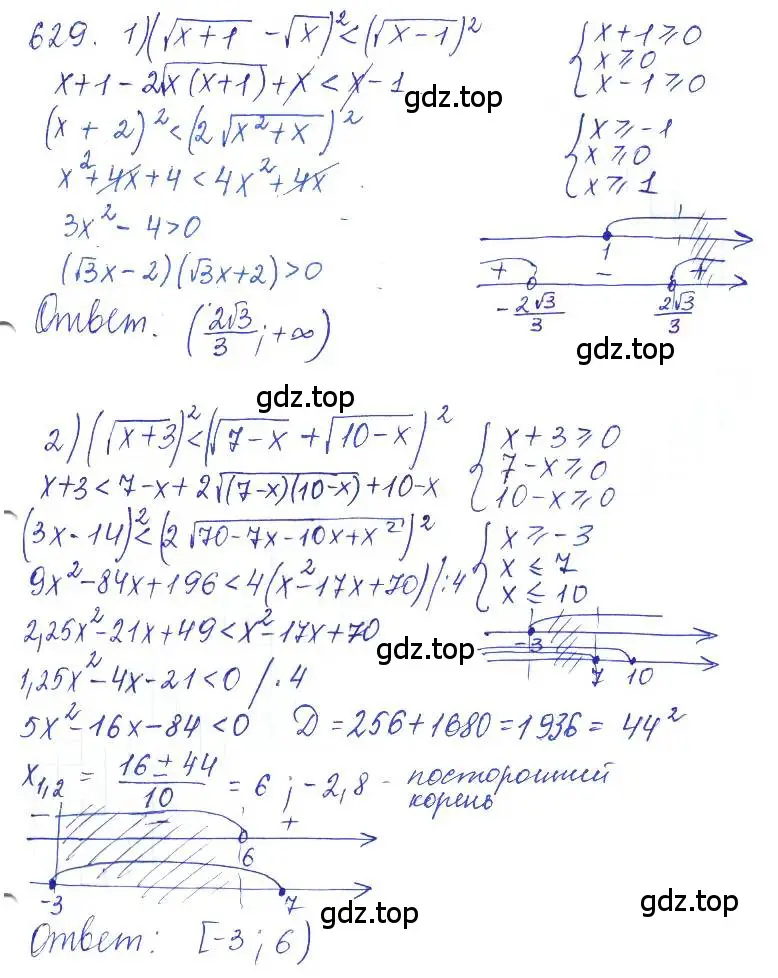 629. 1) (√(x+1) - √x)² < (√(x-1))²
{ x+1 ≥ 0
x ≥ 0
x-1 ≥ 0
x+1-2√(x(x+1))+x < x-1
gdz.top
(x + 2)² < (2√(x²+x))²
{ x ≥ -1
x ≥ 0
x ≥ 1
x²+4x+4 < 4x²+4x
3x²-4>0
1
(√3x-2)(√3x+2)>0
+ - +
-2√3/3 2√3/3
Ответ: (2√3/3; +∞)
gdz.top
gdz.top
2) (√(x+3))² < (√(7-x) + √(10-x))²
{ x+3 ≥ 0
7-x ≥ 0
10-x ≥ 0
x+3 < 7-x+2√((7-x)(10-x))+10-x
(3x-14)² < (2√(70-7x-10x+x²))²
{ x ≥ -3
x ≤ 7
x ≤ 10
9x²-84x+196 < 4(x²-17x+70) |:4
2,25x²-21x+49 < x²-17x+70
-3
gdz.top
7 10
1,25x²-4x-21<0 /·4
5x²-16x-84<0 D=256+1680=1936=44²
x₁,₂ = (16±44)/10 = 6 ; -2,8 - посторонний корень
- - +
6
-3 7
gdz.top
gdz.top
Ответ: [-3; 6)